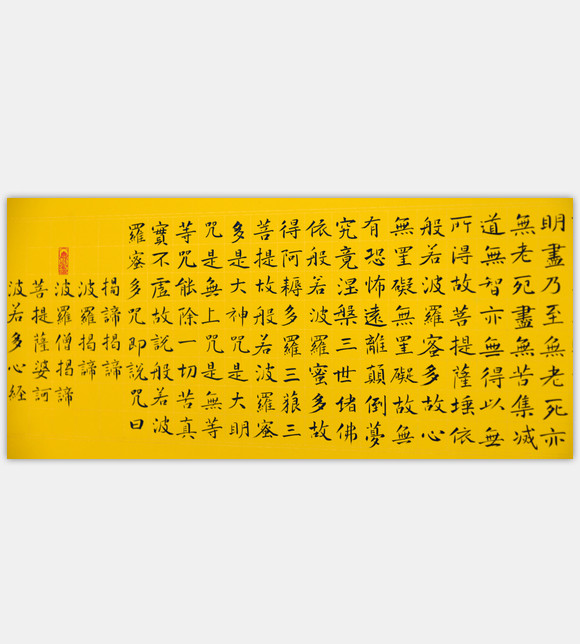 明盡乃至無老死亦
無老死盡無苦集滅
道無智亦無得以無
所得故菩提薩埵依
般若波羅蜜多故心
無罣礙無罣礙故無
有恐怖遠離顛倒夢
究竟涅槃三世诸佛
依般若波羅蜜多故
得阿耨多羅三藐三
菩提故般若波羅蜜
多是大神咒是大明
咒是無上咒是無等
等咒能除一切苦真
實不虛故說般若波
羅蜜多咒即說咒曰
揭諦揭諦
波羅揭諦
波羅僧揭諦
菩提薩婆訶
波若多心経